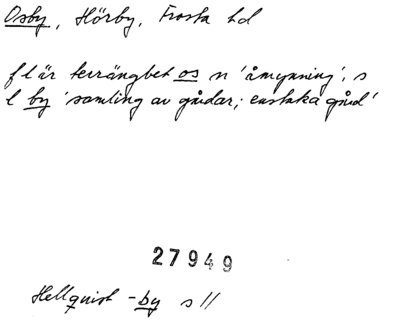 Osby, Hörby, Frosta hd
f l är terrängbet os n 'åmynning'; s
l by 'samling av gårdar; enstaka gård'
27949
Hellquist -by s 11